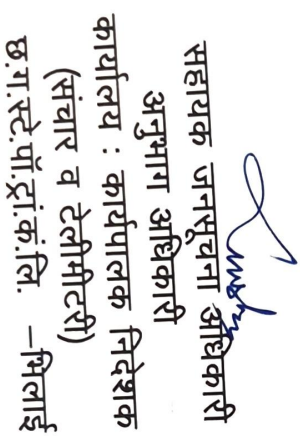 सहायक जनसूचना अधिकारी
अनुभाग अधिकारी
कार्यालय : कार्यपालक निदेशक
(संचार व टेलीमीटरी)
छ.ग.स्टे.पॉ.ट्रां.कं.लि. –भिलाई